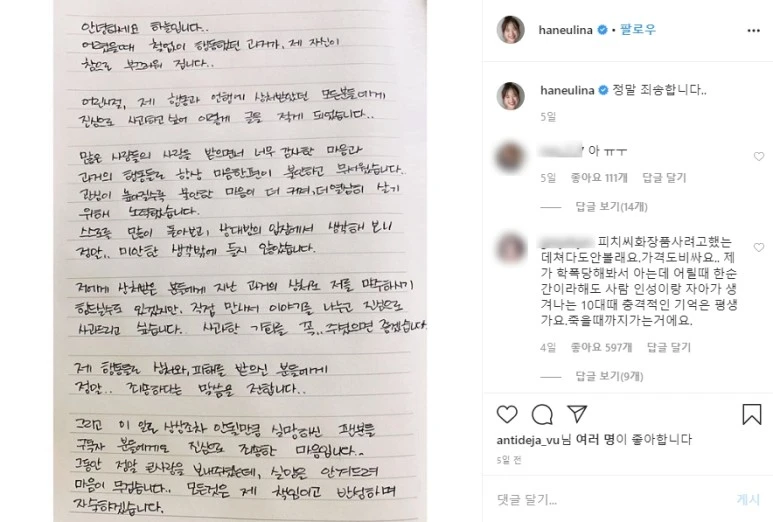 안녕하세요 하늘입니다..
어렸을때 책없이 행동했던 과거가, 제 자신이
참으로 부끄러워 집니다..
어린시절, 제 행동과 언행에 상처받았던 모든분들에게
진심으로 사과하고 싶어 이렇게 글을 적게 되었습니다..
많은 사람들의 사랑을 받으면서 너무 감사한 마음과
과거의 행동들로 항상 마음한편이 불안하고 무서웠습니다.
관심이 높아질수록 불안한 마음이 더 커며, 더 열심히 살기
위해 노력했습니다.
스스로를 많이 돌아보고, 상대방의 입장에서 생각해 보니
정말.. 미안한 생각밖에 들지 않았습니다.
저에게 상처받은 분들에게 지난 과거의 상처로 저를 마주하시기
힘드실수도 있겠지만, 직접 만나서 이야기를 나누고 진심으로
사과드리고 싶습니다. 사과할 기회를 꼭.. 주셨으면 좋겠습니다
제 행동들로 상처와, 피해를 받으신 분들에게
정말.. 죄송하다는 말씀을 전합니다..
그리고 이 일로 상상조차 안될만큼 실망하신 팬분들
구독자 분들에게도 진심으로 죄송한 마음입니다..
그동안 정말 큰사랑을 보내주셨는데, 실망을 안겨드려
마음이 무겁습니다.. 모든것은 제 책임이고 반성하며
자숙하겠습니다.
haneulina • 팔로우
haneulina 정말 죄송합니다..
5일
아 ㅠㅜ
5일 좋아요 111개 답글 달기
답글 보기(14개)
피치씨화장품사려고했는
데쳐다도안볼래요.가격도비싸요.. 제
가 학폭당해봐서 아는데 어릴때 한순
간이라해도 사람 인성이랑 자아가 생
겨나는 10대때 충격적인 기억은 평생
가요.죽을때까지가는거에요.
4일 좋아요 597개 답글 달기
답글 보기(9개)
antideja_vu님 여러 명이 좋아합니다
5일 전
댓글 달기...
게시